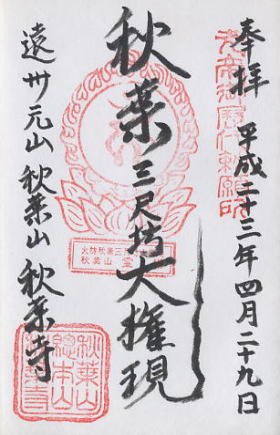 奉拝 平成二十三年四月二十九日
秋葉三尺坊大権現
遠州元山 秋葉山 秋葉寺
火防秋葉三尺
秋葉山
秋葉山
総本山
秋葉寺